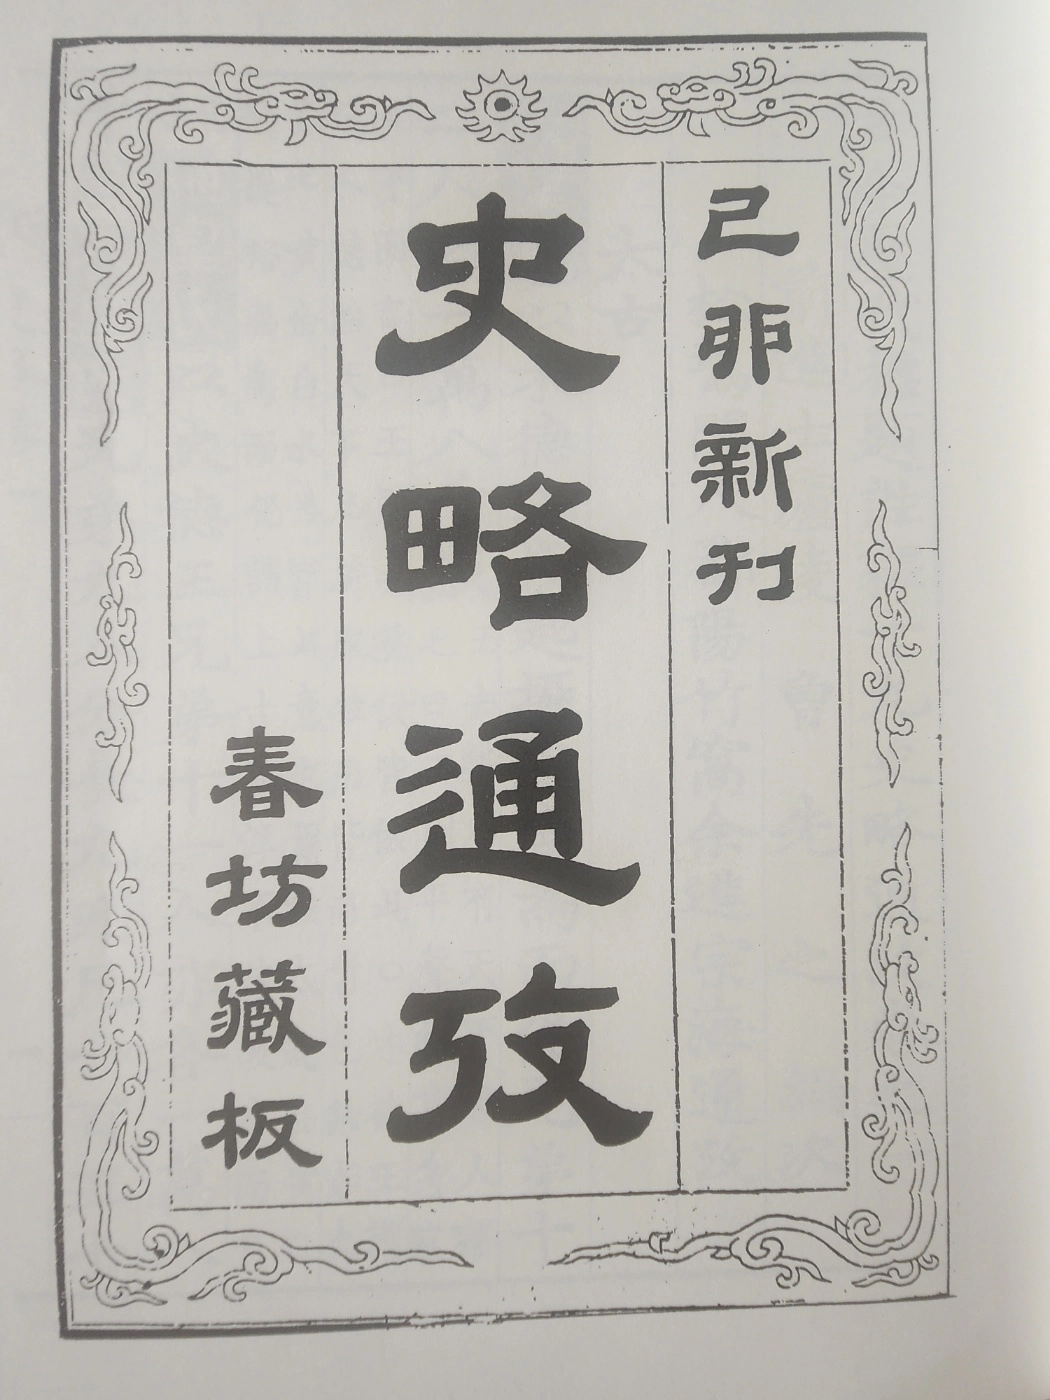 己卯新刊
史略通攷
春坊藏板